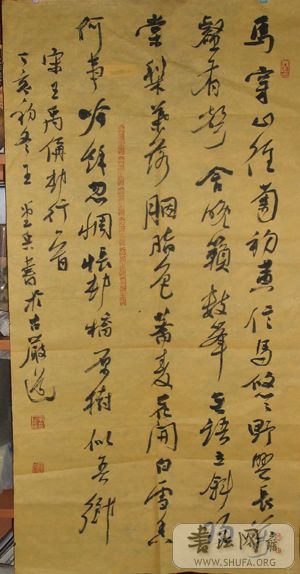 馬穿山径菊初黄信馬悠々野興長萬
壑有聲含晚籟數峰無語立斜陽
棠梨葉落胭脂色蕎麦花開白雪香
何事吟餘忽惆悵村橋原樹似吾鄉
宋王禹偁村行一首
丁亥初冬王書於古嚴道
书法网
WWW.SHUFA.ORG